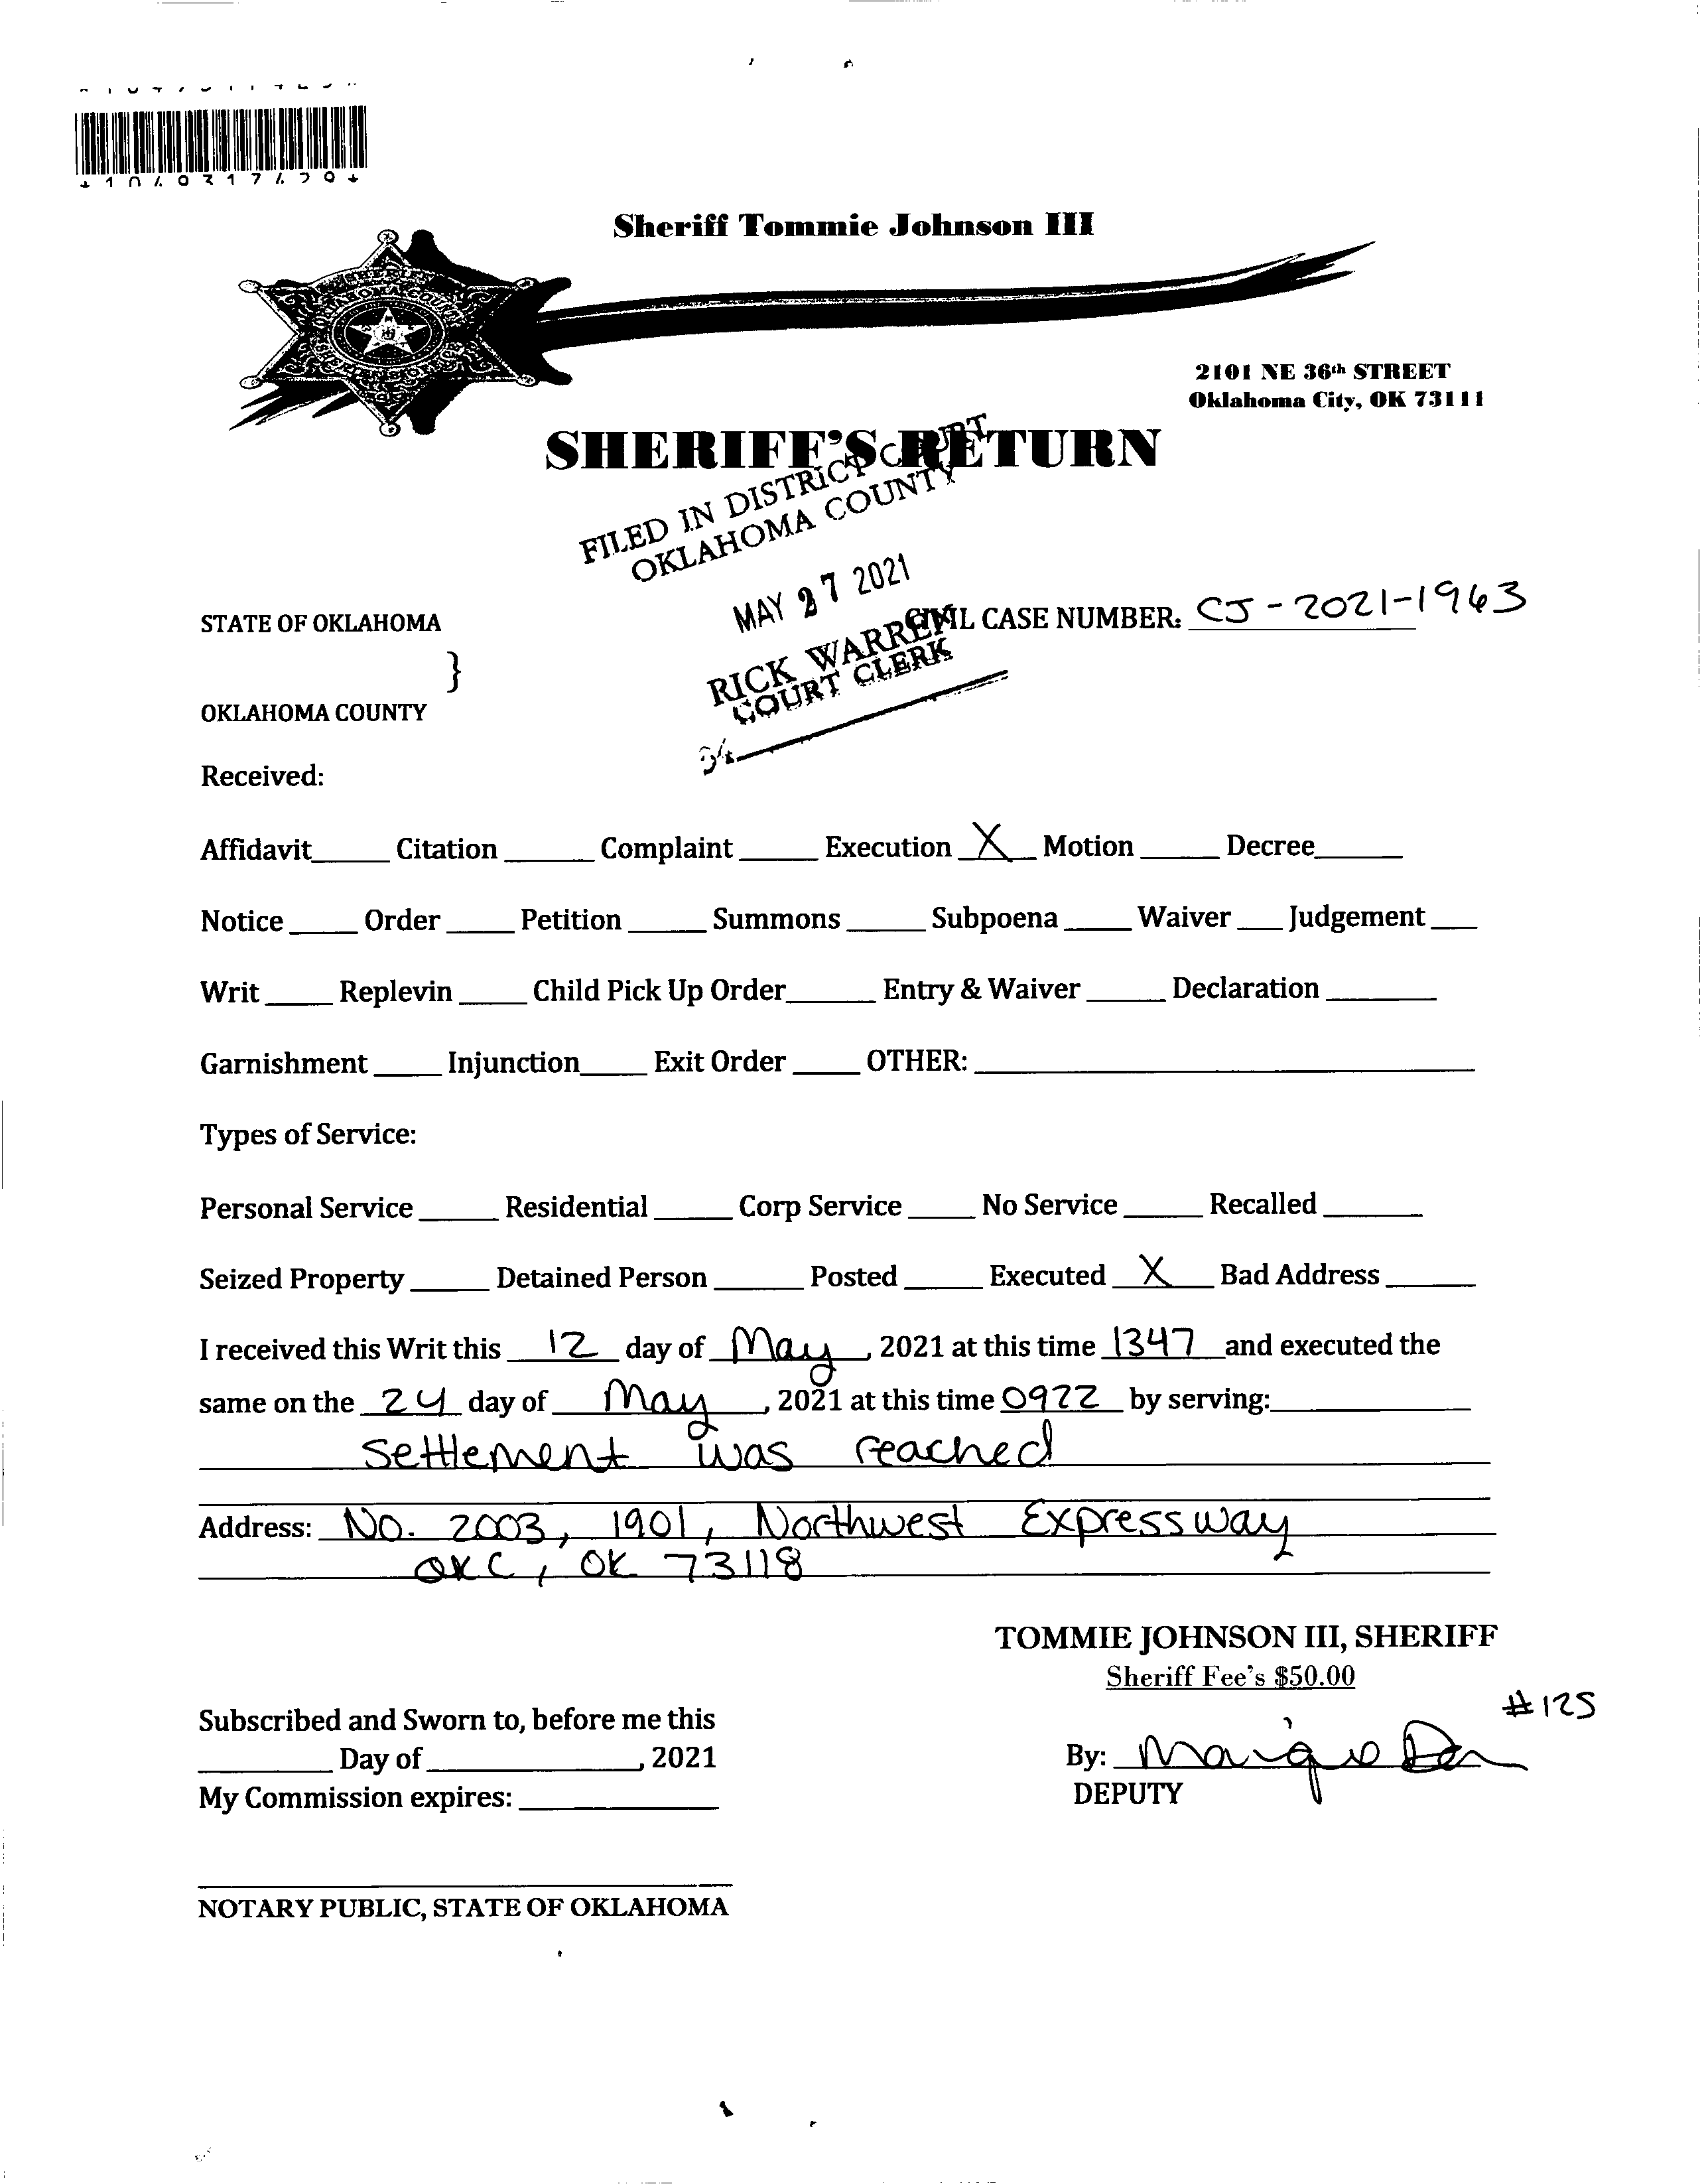 *1049317429*
Sheriff Tommie Johnson III
SHERIFF
2101 NE 36th STREET
Oklahoma City, OK 73111
SHERIFF'S RETURN
FILED IN DISTRICT COURT
OKLAHOMA COUNTY
MAY 27 2021
RICK WARREN
COURT CLERK
STATE OF OKLAHOMA
}
OKLAHOMA COUNTY
CIVIL CASE NUMBER: CJ-2021-1963
Received:
Affidavit_____ Citation _____ Complaint _____ Execution X Motion _____ Decree_____
Notice _____ Order _____ Petition _____ Summons _____ Subpoena _____ Waiver ___ Judgement ___
Writ _____ Replevin _____ Child Pick Up Order_____ Entry & Waiver _____ Declaration _____
Garnishment _____ Injunction_____ Exit Order _____ OTHER: _____
Types of Service:
Personal Service _____ Residential _____ Corp Service _____ No Service _____ Recalled _____
Seized Property _____ Detained Person _____ Posted _____ Executed X Bad Address _____
I received this Writ this 12 day of May, 2021 at this time 1347 and executed the
same on the 24 day of May, 2021 at this time 0922 by serving:_____
Settlement was reached
Address: NO. 2003, 1901, Northwest Expressway
OKC, OK 73118
TOMMIE JOHNSON III, SHERIFF
Sheriff Fee's $50.00
#125
Subscribed and Sworn to, before me this
_____ Day of _____, 2021
My Commission expires: _____
By:
DEPUTY
NOTARY PUBLIC, STATE OF OKLAHOMA